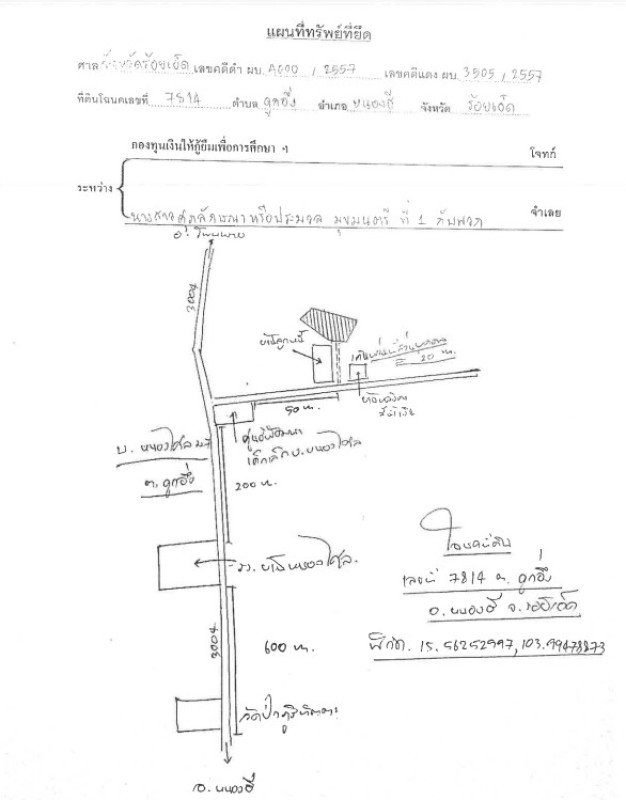 แผนที่ทรัพย์ที่ยึด
ศาล จังหวัดร้อยเอ็ด เลขคดีดำ ผบ. A000 / 2557 เลขคดีแดง ผบ. 3505 / 2557
ที่ดินโฉนดเลขที่ 7814 ตำบล ดูกอึ่ง อำเภอ หนองฮี จังหวัด ร้อยเอ็ด
กองทุนเงินให้กู้ยืมเพื่อการศึกษา ฯ โจทก์
ระหว่าง
นางสาว หรือประมวล มุขมนตรี ที่ 1 กับพวก จำเลย
อ. โพนทราย
3004
20 ม.
50 ม.
ศูนย์พัฒนา
เด็กเล็ก
บ. หนอง ม.7
ต. ดูกอึ่ง
200 ม.
รร. บ้านหนอง
3004
600 ม.
วัดป่า
อ. หนองฮี
โฉนดที่ดิน
เลขที่ 7814 ต. ดูกอึ่ง
อ. หนองฮี จ. ร้อยเอ็ด
พิกัด. 15.56252997, 103.99478873